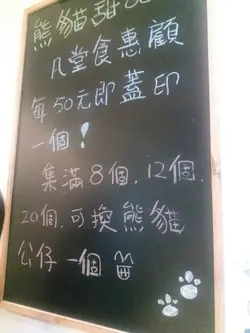 熊貓甜
凡堂食惠顧
每50元即蓋印
一個!
集滿8個.12個.
20個.可換熊貓
公仔一個